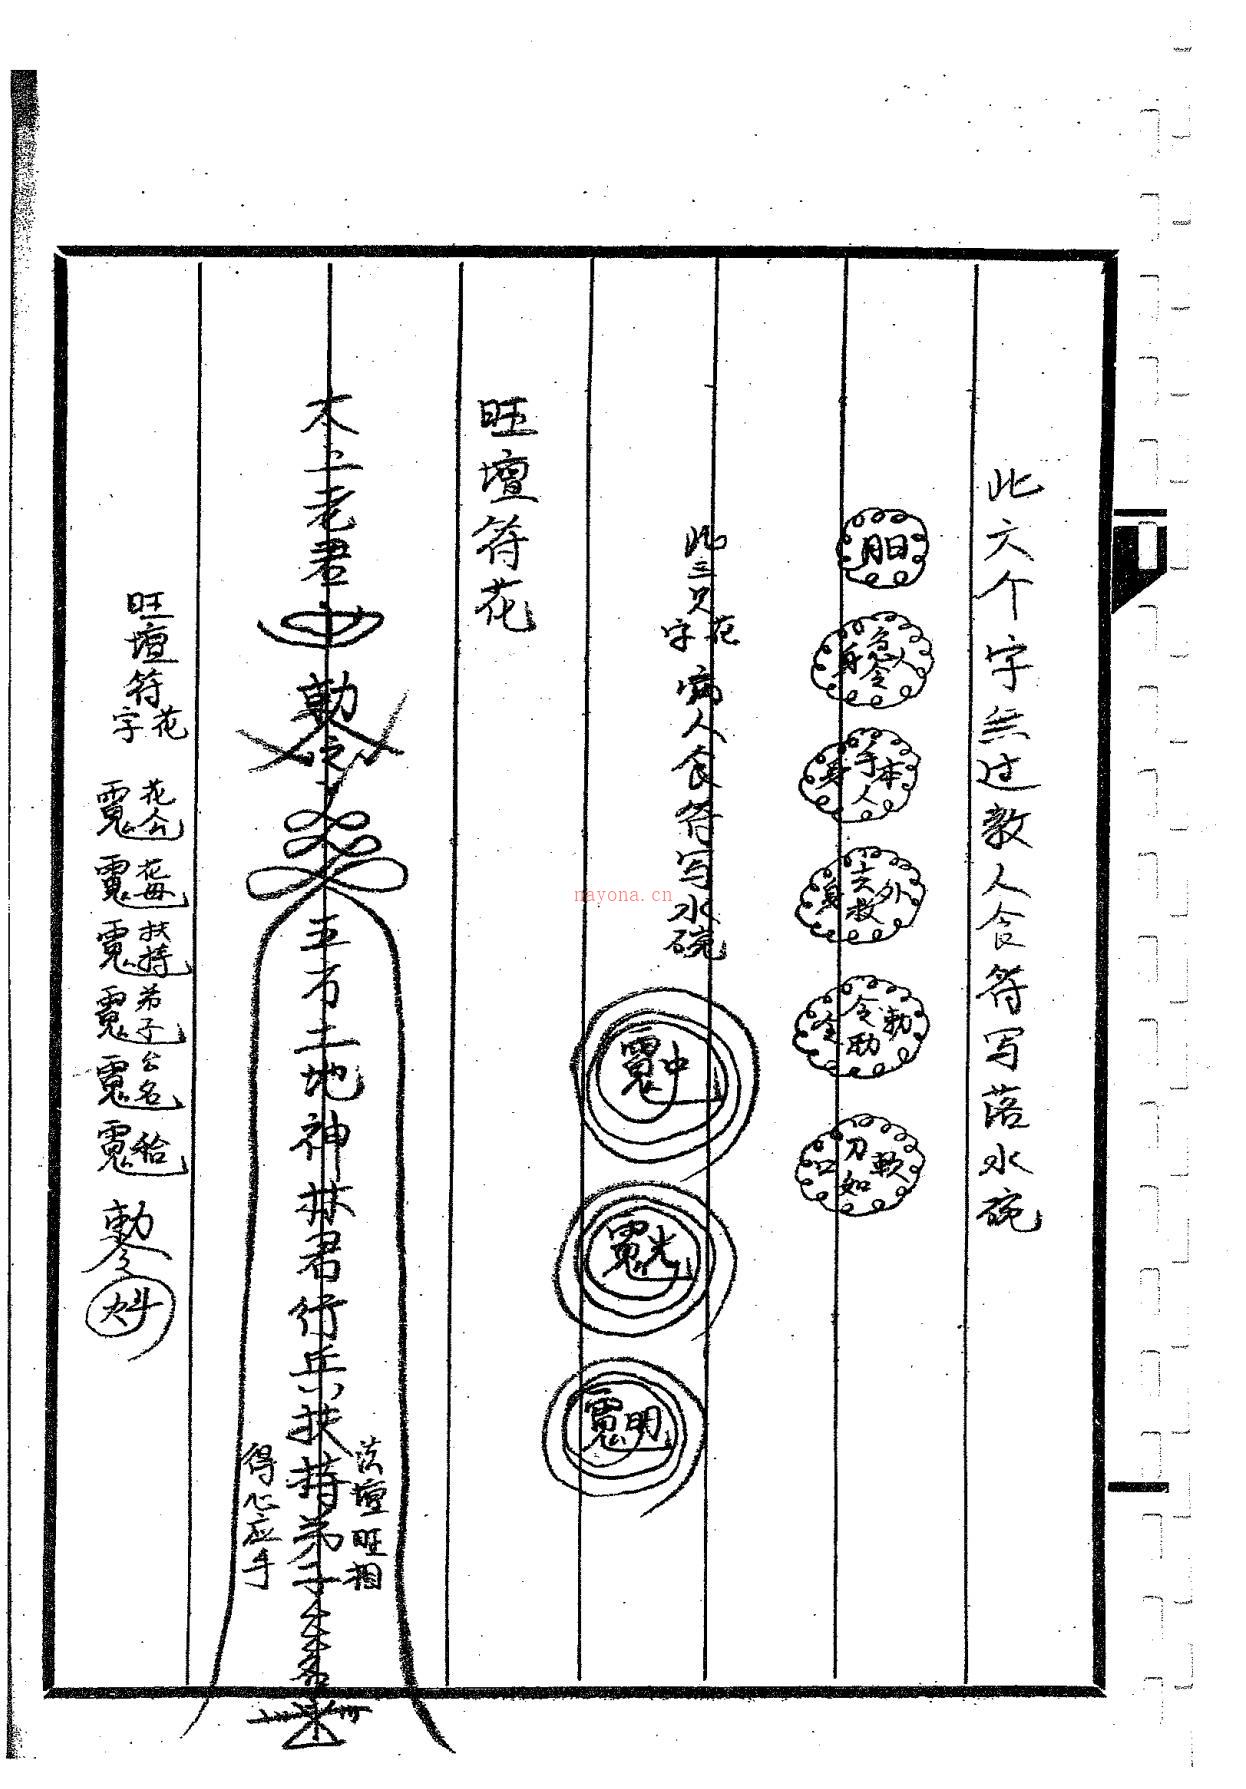 此六个字無过教人食符写落水碗
月日
身急令人
身手人本
身去救外
令助勅
口刀如軟
此三只字花病人食符写水碗
中
光
明
旺壇符花
太上老君勅令五方土地神林君行兵扶持弟子
法壇旺相
得心应手
旺壇符字花
花公
花母
扶持
弟子
名
給
勅令
nayona.cn